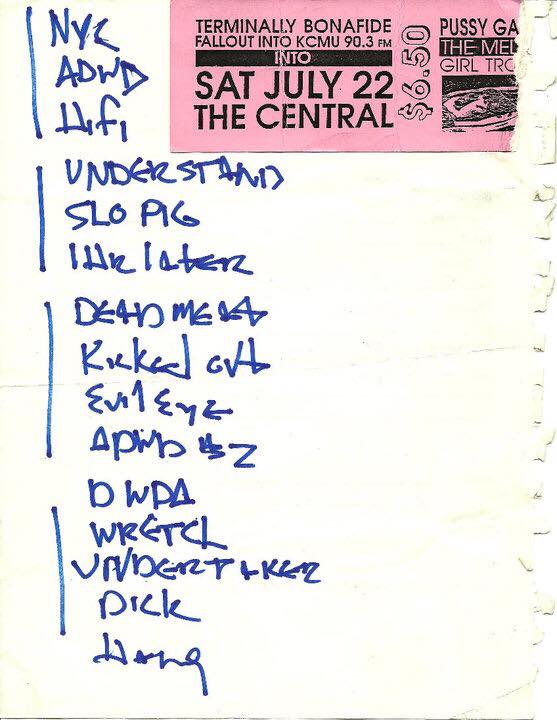 TERMINALLY BONAFIDE
FALLOUT INTO KCMU 90.3 FM
INTO
SAT JULY 22
THE CENTRAL
$6.50
PUSSY GA
THE MEL
GIRL TRO
NYC
ADWD
HiFi
UNDERSTAND
SLO PIG
1 HR later
DEAD MEAT
Kicked out
Evil Eye
ADWD #2
DWDA
WRETCH
UNDERTAKER
DICK
Hang